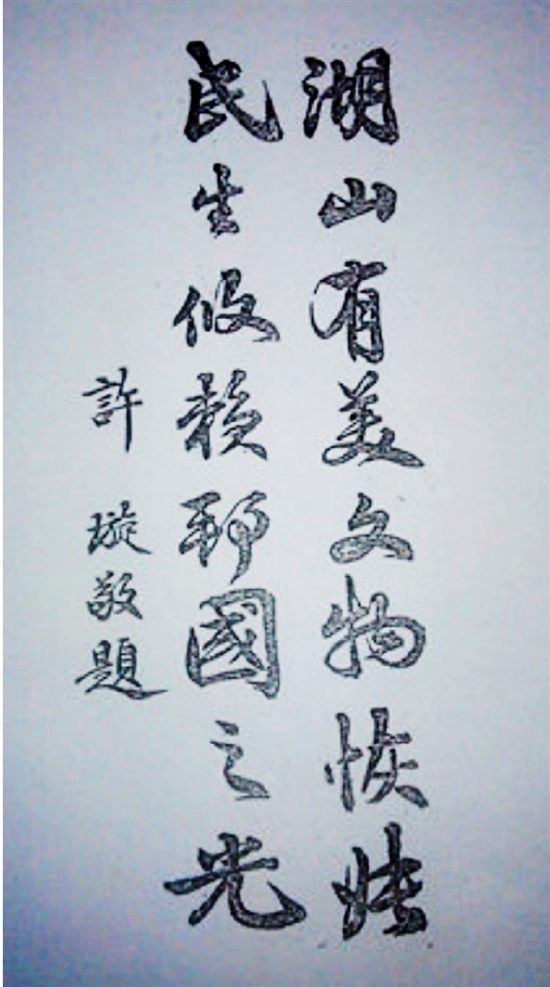 湖山有美文物恢張
民生攸賴邦國之光
許璇敬題